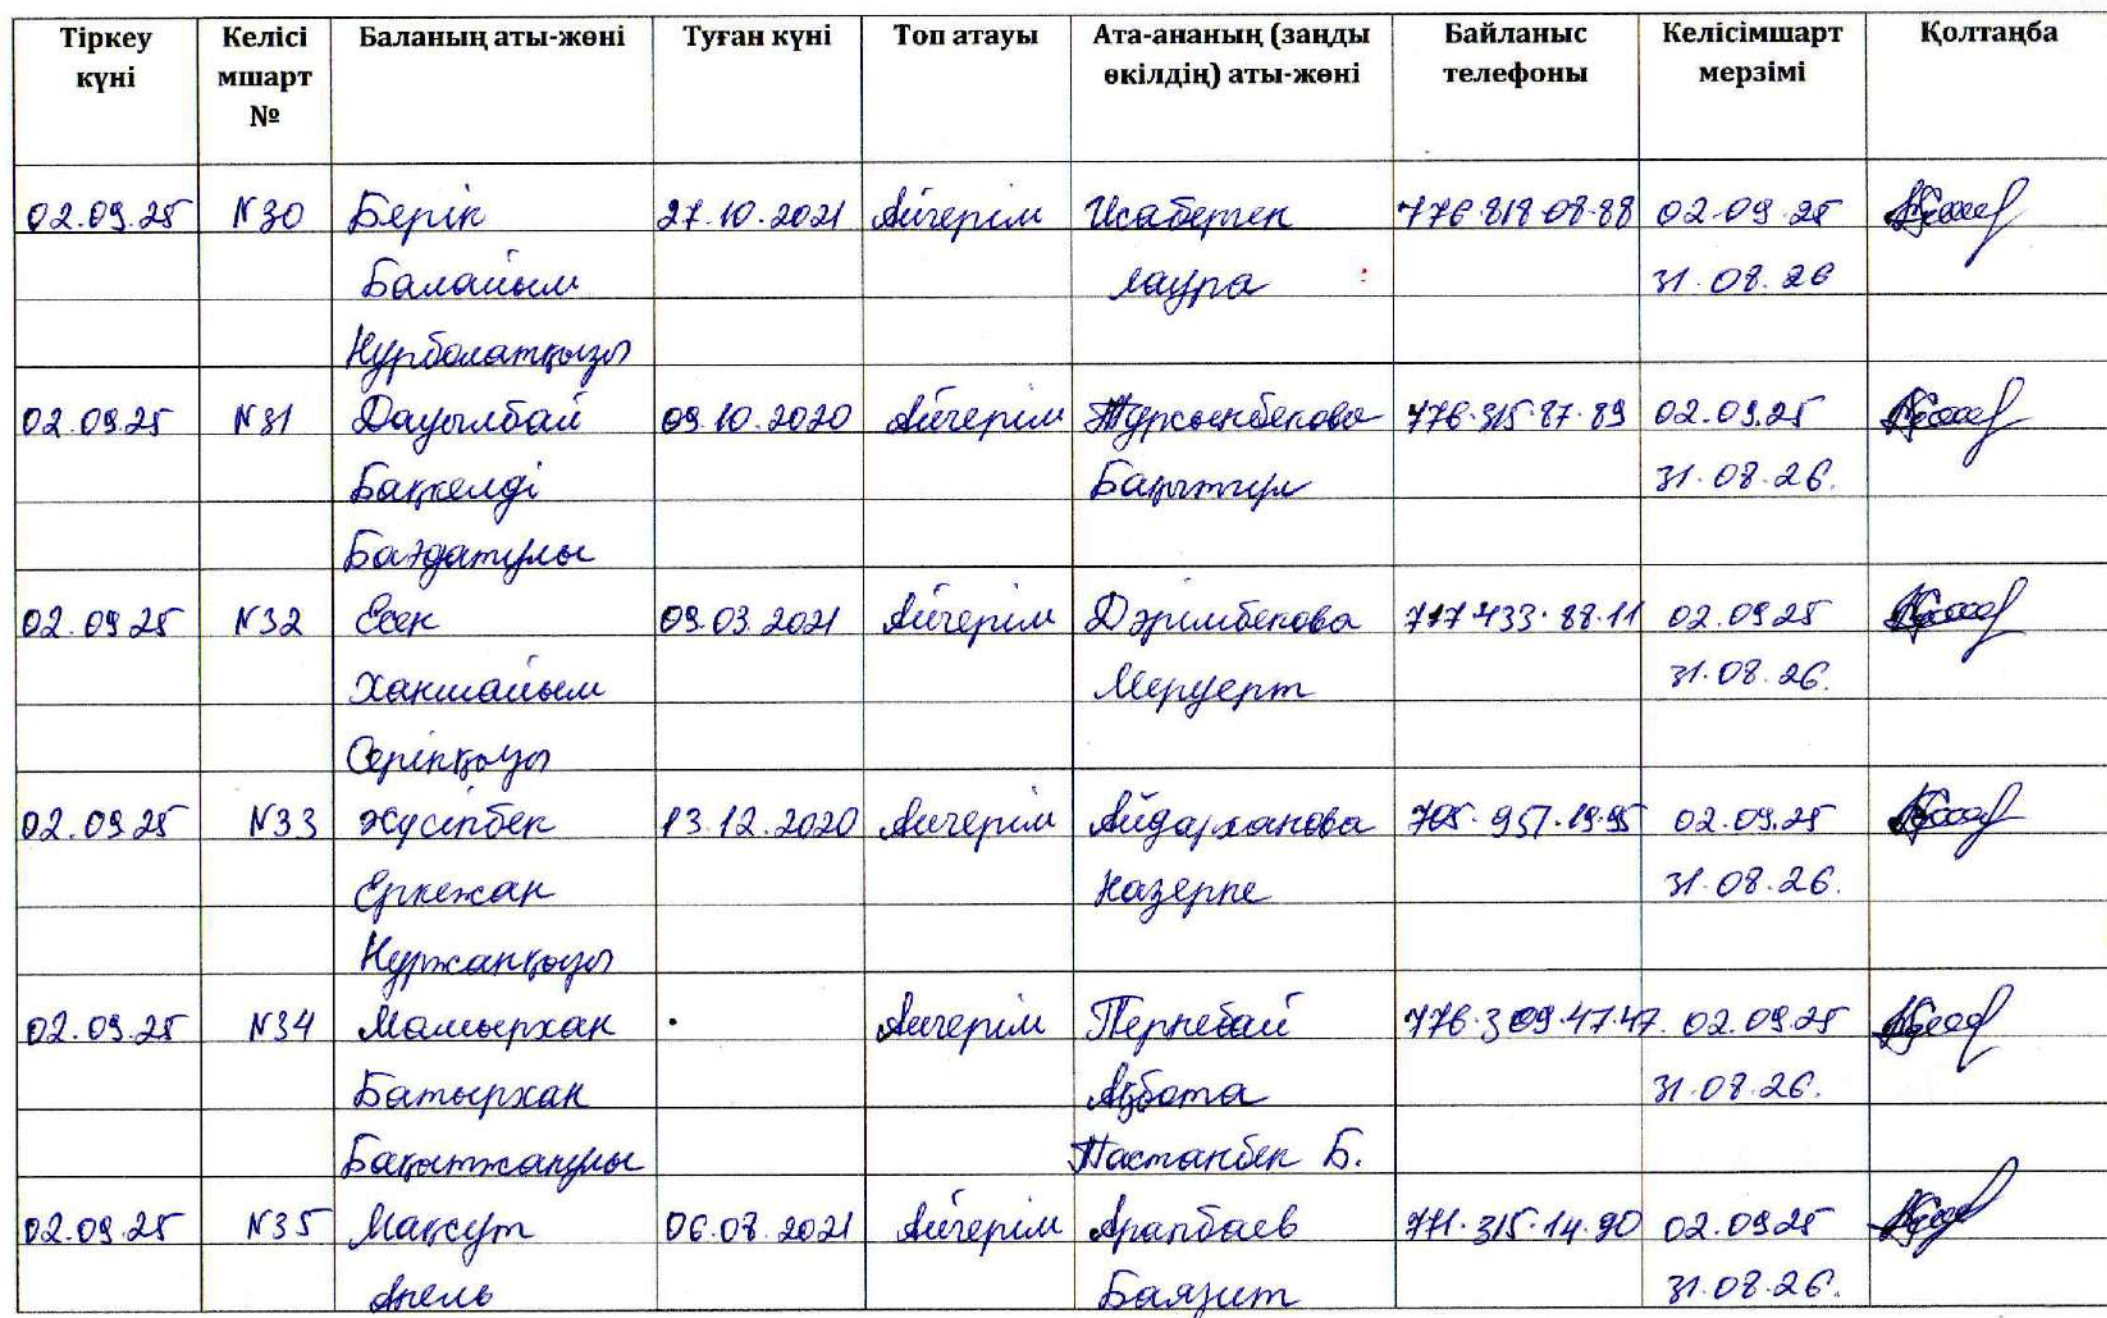 Тіркеу күні | Келісі мшарт № | Баланың аты-жөні | Туған күні | Топ атауы | Ата-ананың (заңды өкілдің) аты-жөні | Байланыс телефоны | Келісімшарт мерзімі | Қолтаңба
02.09.25 | №30 | Берік | 27.10.2021 | Айгерім | Исабетек | 776.818 08.88 | 02.09.25
Балайым | лаура | 31.08.26
Нұрболатқызы
02.09.25 | №31 | Дауылбай | 09.10.2020 | Айгерім | Тұрсынбекова | 776.315.87.89 | 02.09.25
Баққелді | Бақытгүл | 31.08.26.
Бағдатұлы
02.09.25 | №32 | Есен | 09.03.2021 | Айгерім | Дәрімбекова | 747 433.88.11 | 02.09.25
Ханшайым | Меруерт | 31.08.26.
Серікқызы
02.09.25 | №33 | Жүсіпбек | 13.12.2020 | Айгерім | Айдарханова | 705.957.19.95 | 02.09.25
Еркежан | Назерке | 31.08.26.
Нұржанқызы
02.09.25 | №34 | Мамырхан | Айгерім | Пернебай | 776.309.47.47. | 02.09.25
Батырхан | Ақбота | 31.08.26.
Бақытжанұлы | Пастанбек Б.
02.09.25 | №35 | Мақсұт | 06.08.2021 | Айгерім | Арапбаев | 771.315.14.90 | 02.09.25
Анель | Баязит | 31.08.26.